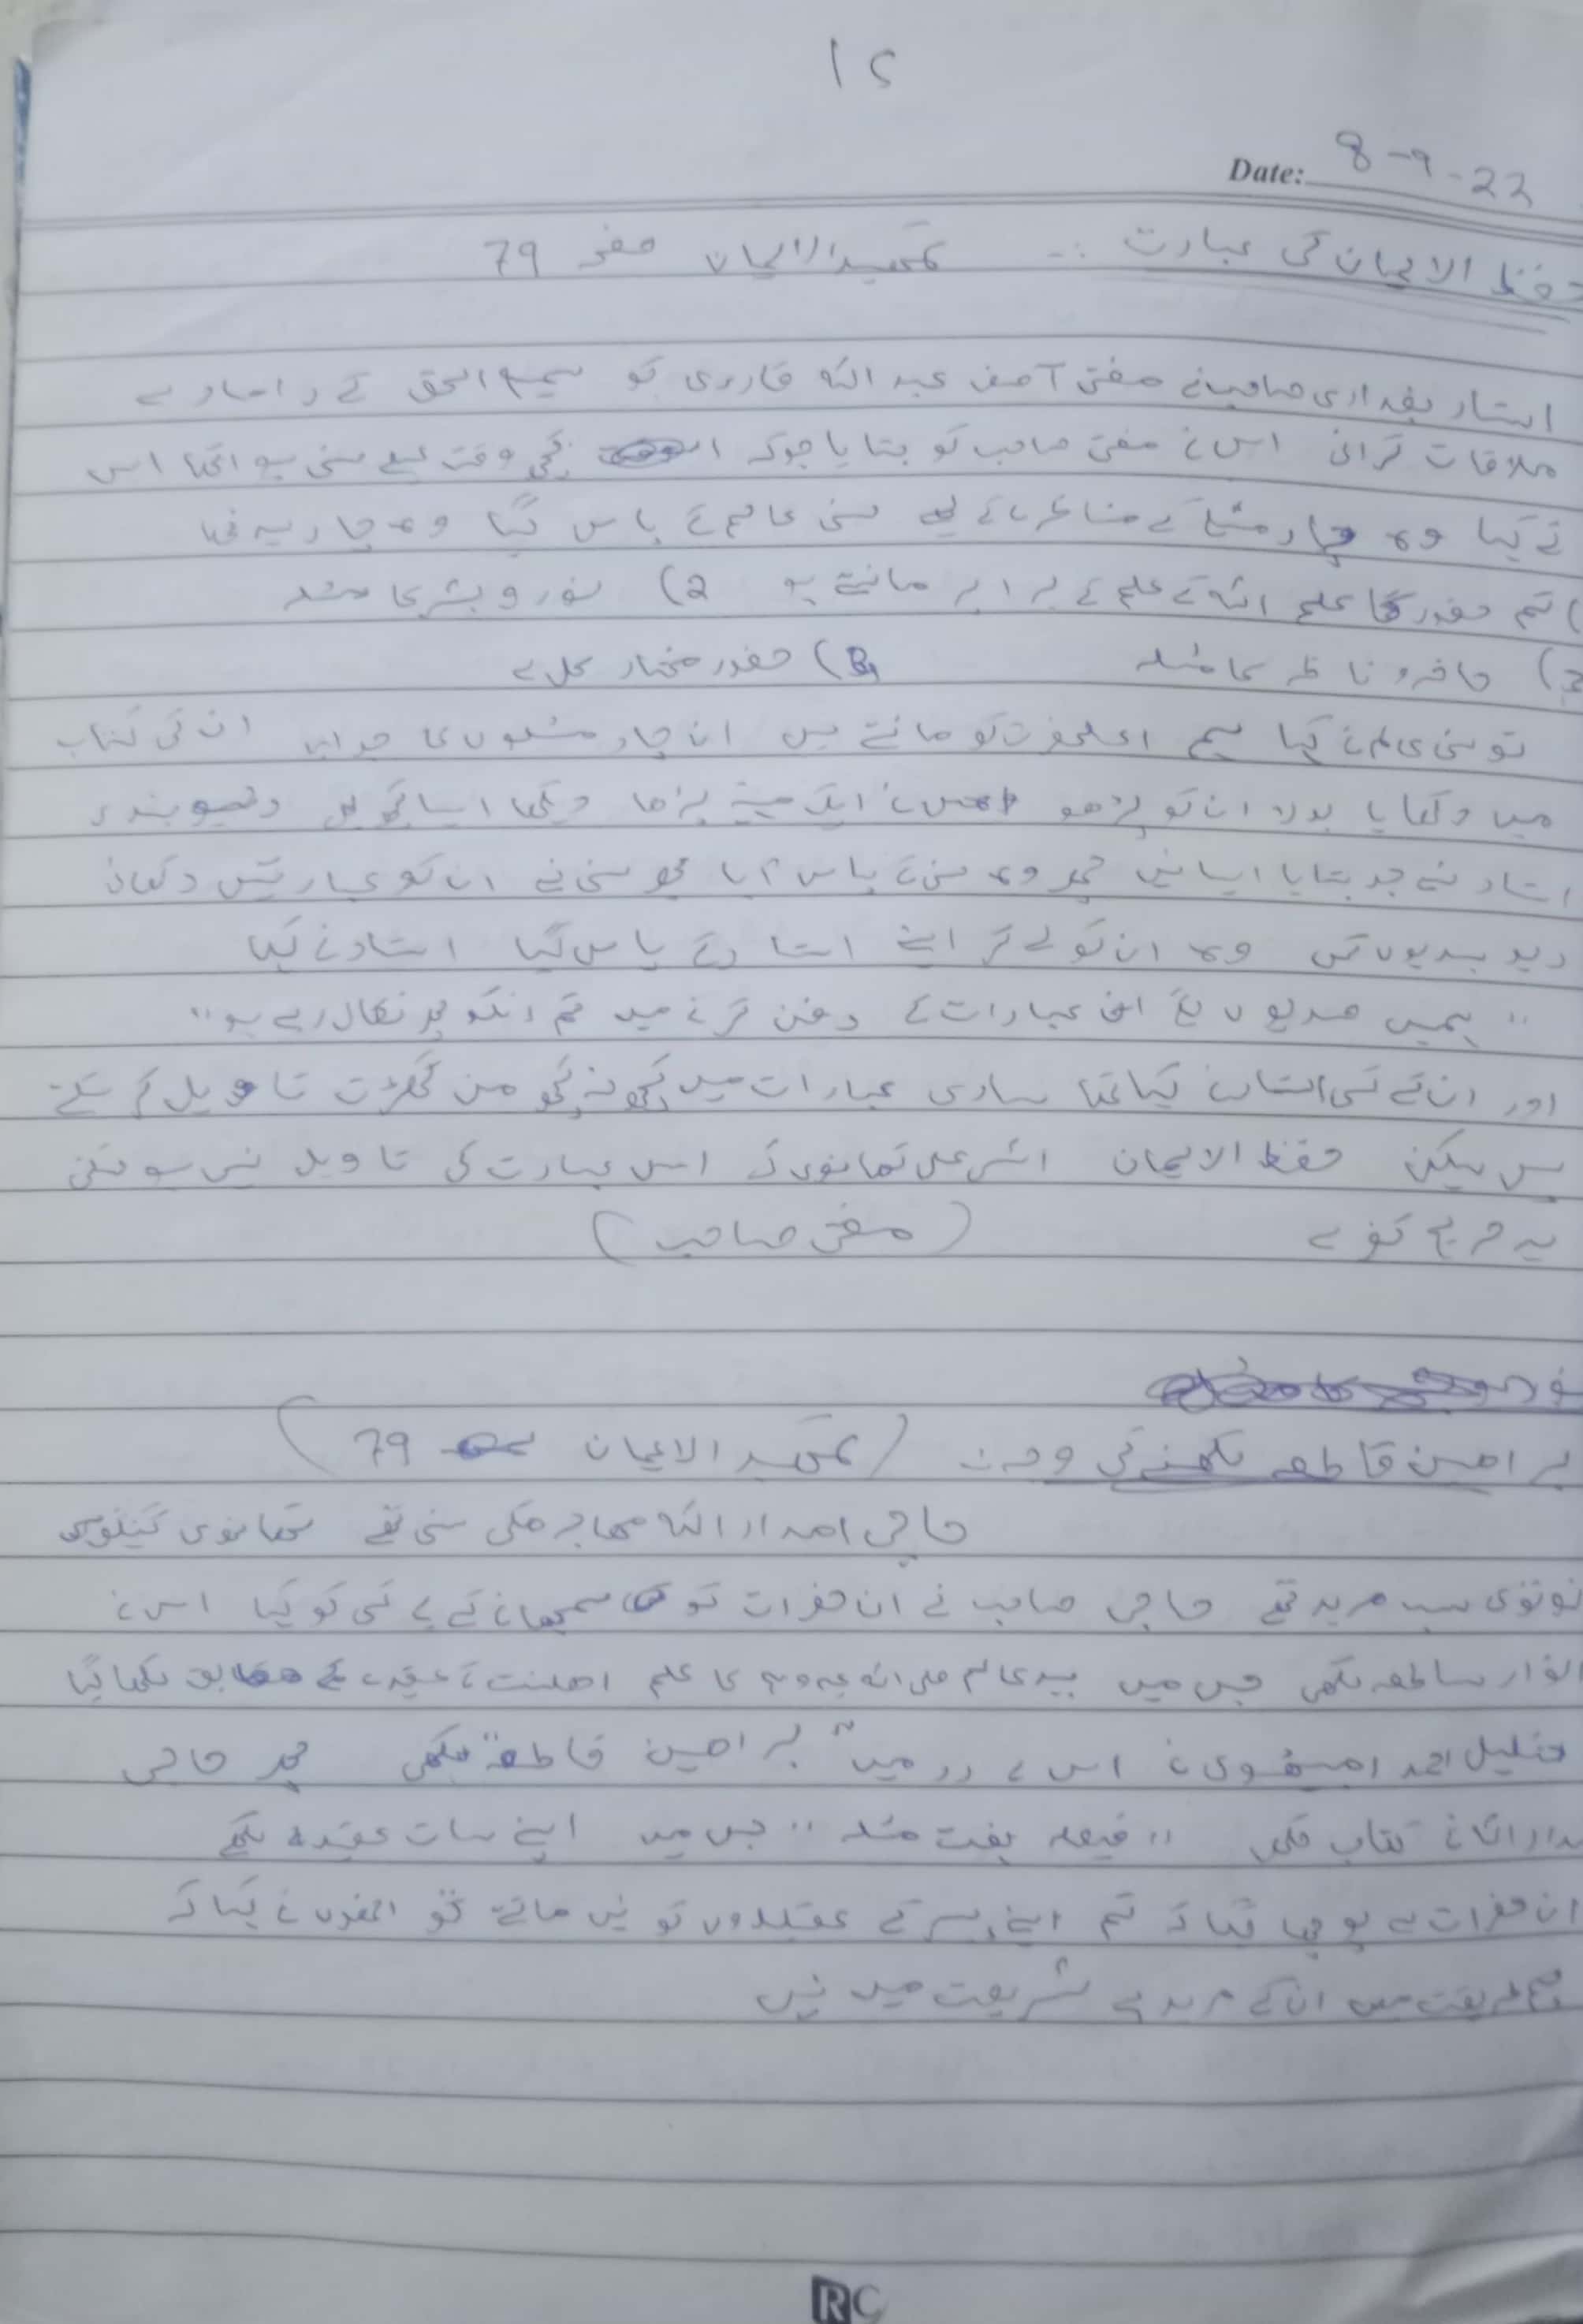 15
Date: 8-9-22
حفظ الایمان کی عبارت :۔ تمہید الایمان صفحہ 79
استاد بغدادی صاحب نے مفتی آصف عبد اللہ قادری کو سمیع الحق کے داماد سے
ملاقات کرائی اس نے مفتی صاحب کو بتایا جو کہ کچھ وقت پہلے سنی ہوا تھا اس
نے کہا وہ چار مسئلے کے مناظرے کے لیے سنی عالم کے پاس گیا وہ چار یہ تھے
) تم حضور کا علم اللہ کے علم کے برابر مانتے ہو 2) نور و بشر کا مسئلہ
3) حاضر و ناظر کا مسئلہ 4) حضور مختار کل ہے
تو سنی عالم نے کہا ہم اعلحضرت کو مانتے ہیں ان چار مسئلوں کا جواب ان کی کتاب
میں دکھایا بولا ان کو پڑھو اس نے ایک مہینے پڑھا دیکھا ایسا کچھ نہیں دیوبندی
استاد نے جو بتایا ایسا نہیں پھر وہ سنی کے پاس آیا پھر سنی نے ان کو عبارتیں دکھائی
دیوبندیوں کی وہ ان کو لے کر اپنے استاد کے پاس گیا استاد نے کہا
" ہمیں صدیوں لگے ان عبارات کے دفن کرنے میں تم انکو پھر نکال رہے ہو"
اور ان کے کسی استاد نے کہا تھا ساری عبارات میں کچھ نہ کچھ من گھڑت تاویل کر سکتے
ہیں لیکن حفظ الایمان اشرعلی تھانوی کی اس عبارت کی تاویل نہیں ہو سکتی
یہ صریح کفر ہے (مفتی صاحب)
براھین قاطعہ لکھنے کی وجہ : (تمہید الایمان 79)
حاجی امداد اللہ مہاجر مکی سنی تھے تھانوی گنگوہی
نوتوی سب مرید تھے حاجی صاحب نے ان حضرات کو سمجھانے کے لیے کسی کو کہا اس نے
انوار ساطعہ لکھی جس میں سید عالم صلی اللہ علیہ وسلم کا علم اھلسنت کے عقیدے کے مطابق لکھا گیا
خلیل احمد امبیٹھوی نے اس کے رد میں "براھین قاطعہ" لکھی پھر حاجی
مداد اللہ نے کتاب لکھی " فیصلہ ہفت مسئلہ " جس میں اپنے سات عقیدہ لکھے
ان حضرات سے پوچھا گیا کہ تم اپنے پیر کے عقیدوں کو نہیں مانتے تو انھوں نے کہا کہ
ہم طریقت میں ان کے مرید ہے شریعت میں نہیں
RC